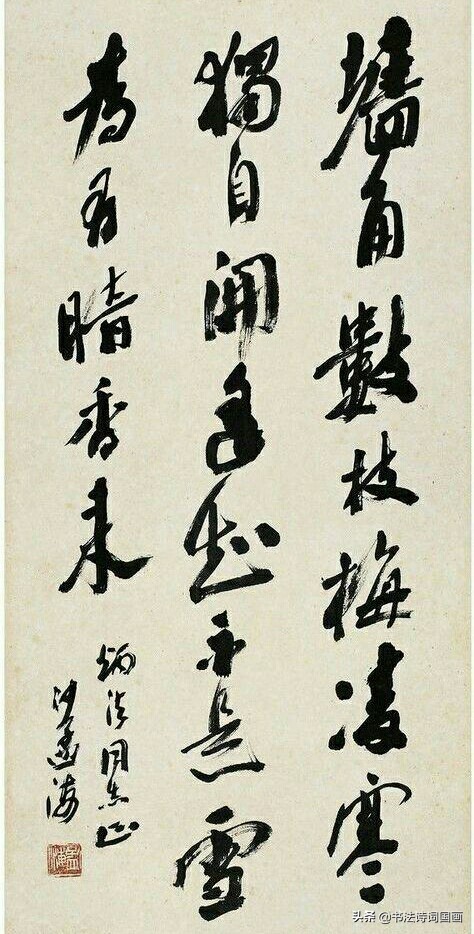 墻角數枝梅凌寒
獨自開遥知不是雪
為有暗香来
炳法同志正
沙孟海
头条 @书法诗词国画